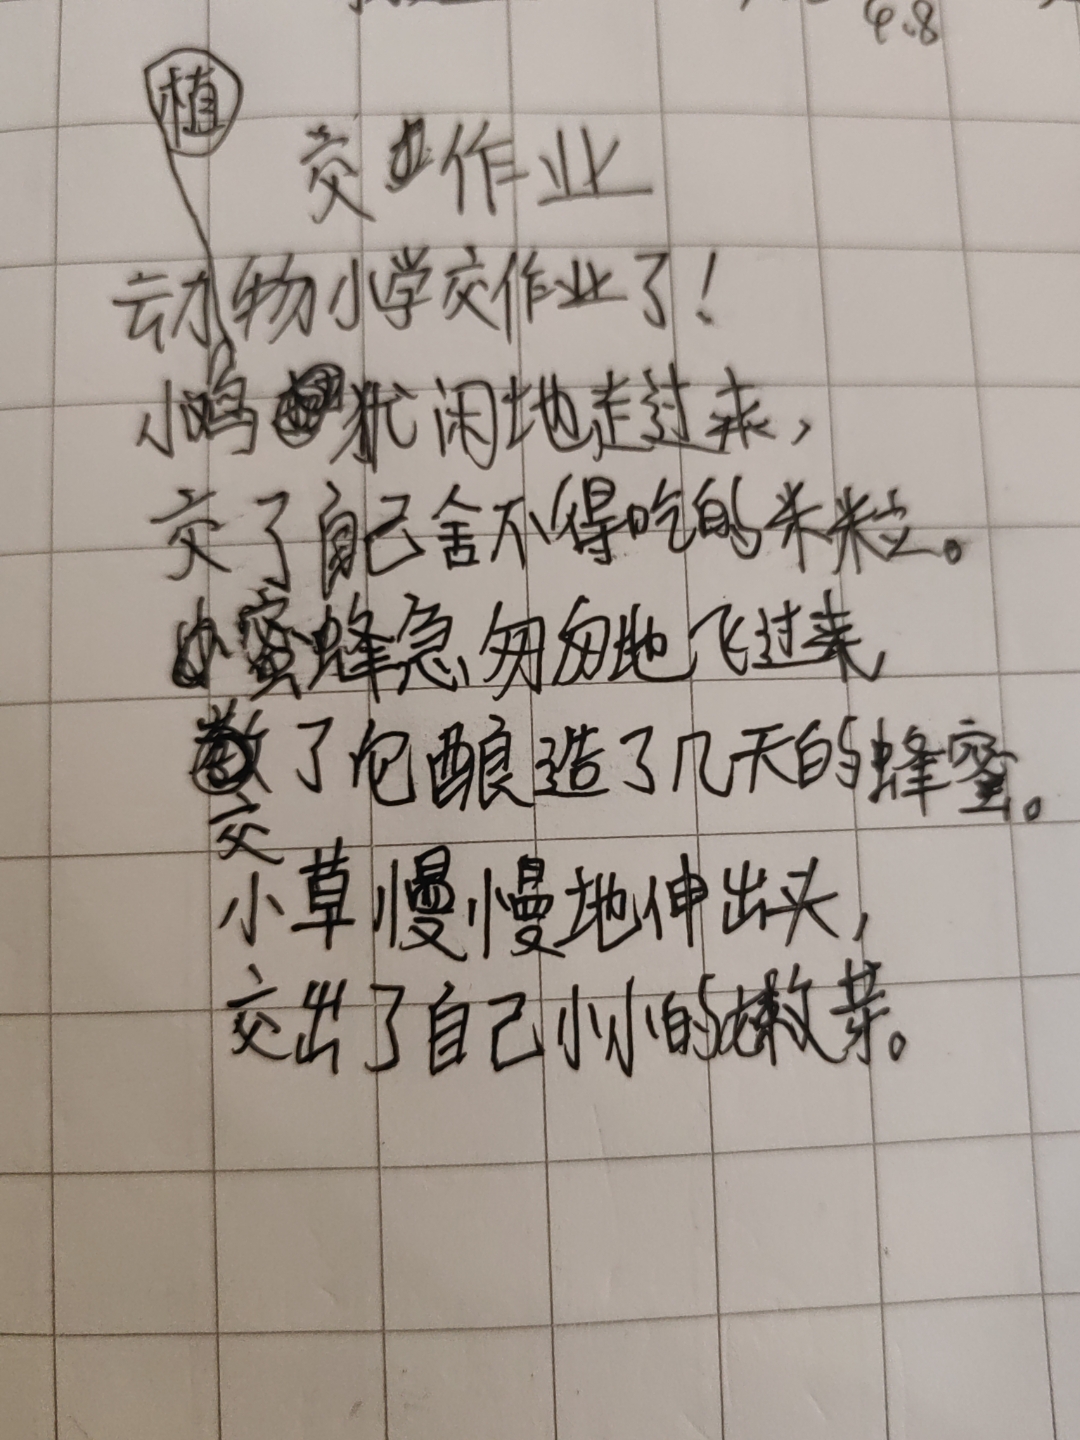 4.8
植
交作业
动物小学交作业了！
小鸡犹闲地走过来，
交了自己舍不得吃的米粒。
小蜜蜂急匆匆地飞过来，
交了它酿造了几天的蜂蜜。
小草慢慢地伸出头，
交出了自己小小的嫩芽。